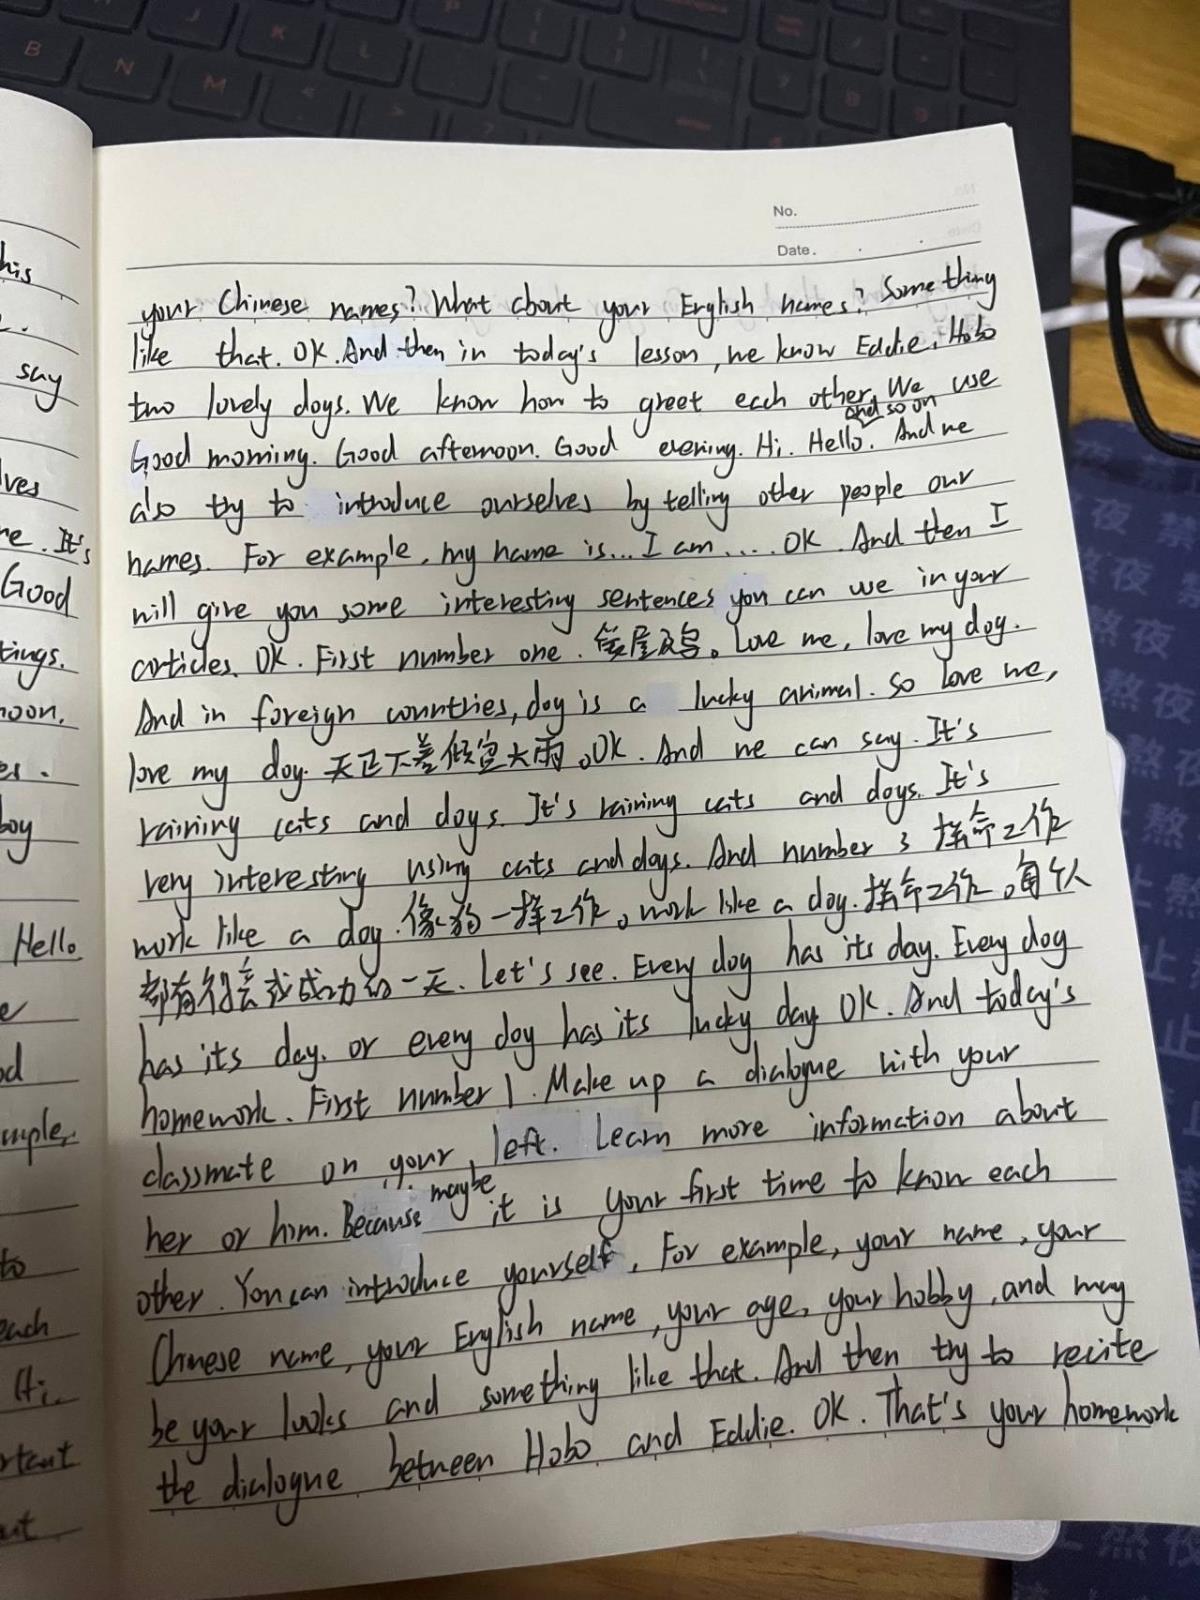 No.
Date.
your Chinese names? What about your English names? Something
like that. OK. And then in today's lesson, we know Eddie, Hobo
two lovely dogs. We know how to greet each other. We use
and so on
Good morning. Good afternoon. Good evening. Hi. Hello. And we
also try to introduce ourselves by telling other people our
names. For example, my name is... I am .... OK. And then I
will give you some interesting sentences you can use in your
articles. OK. First number one. 屋及乌。Love me, love my dog.
And in foreign countries, dog is a lucky animal. So love me,
love my dog. 天正下着倾盆大雨。OK. And we can say. It's
raining cats and dogs. It's raining cats and dogs. It's
very interesting using cats and dogs. And number 3 拼命工作
work like a dog. 像狗一样工作。work like a dog. 拼命工作。每个人
都有得意或成功的一天. Let's see. Every dog has its day. Every dog
has its day. or every dog has its lucky day OK. And today's
homework. First number 1. Make up a dialogue with your
classmate on your left. Learn more information about
maybe
her or him. Because it is your first time to know each
other. You can introduce yourself. For example, your name, your
Chinese name, your English name, your age, your hobby, and may
be your looks and something like that. And then try to recite
the dialogue between Hobo and Eddie. OK. That's your homework
his
say
lves
me. It's
Good
tings.
noon.
es.
boy
Hello
e
od
ample,
to
each
Hi.
rtant
ut